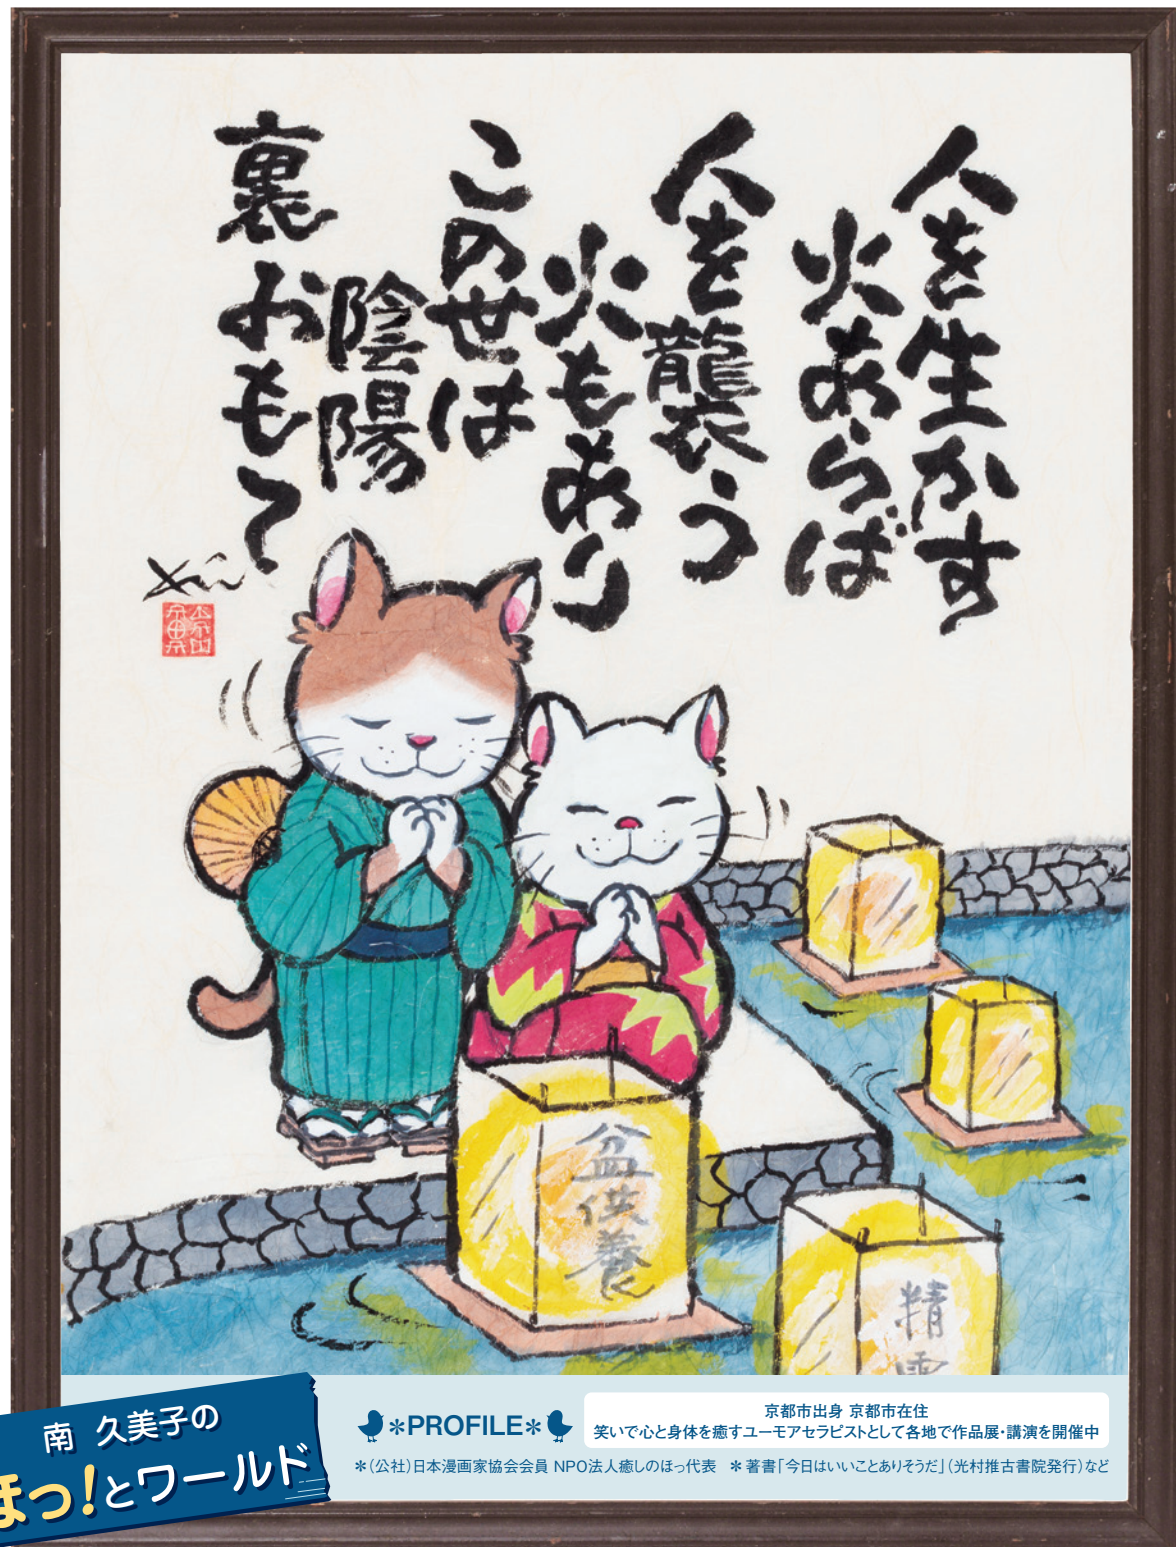 人を生かす
火あらば
人を襲う
火もあり
この世は
陰陽
裏おもて
盆供養
精霊
南 久美子の
ほっ!とワールド
*PROFILE*
京都市出身 京都市在住
笑いで心と身体を癒すユーモアセラピストとして各地で作品展・講演を開催中
*(公社)日本漫画家協会会員 NPO法人癒しのほっ代表 *著書「今日はいいことありそうだ」(光村推古書院発行)など